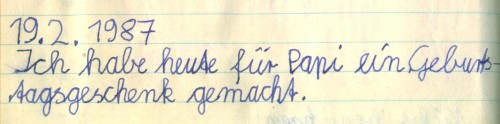 19.2.1987
Ich habe heute für Papi ein Geburts-
tagsgeschenk gemacht.